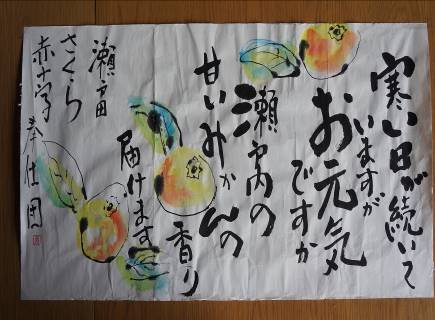 寒い日が続いて
いますが
お元気
ですか
瀬戸内の
甘いみかんの
香り
届けます
瀬戸田
さくら
赤十字奉仕団